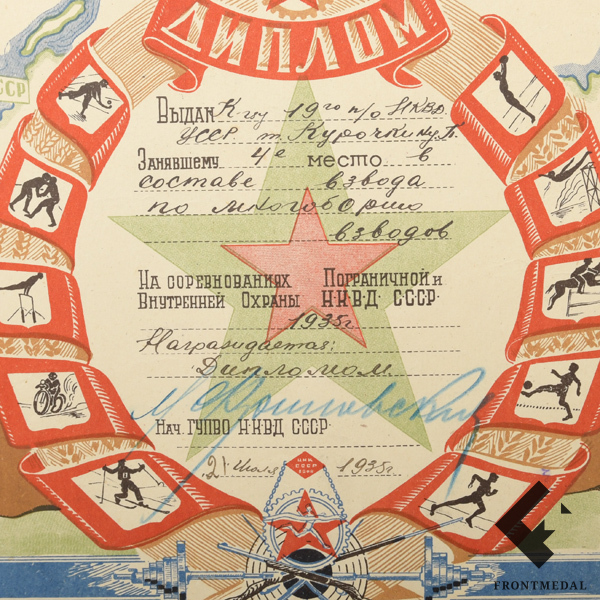 ДИПЛОМ
СССР
Выдан К-ту 19го п/о НКВД
УССР т. Курочкину П.
Занявшему 4е место в
составе взвода
по многоборью
взводов
На соревнованиях Пограничной и
Внутренней Охраны Н·К·В·Д· СССР·
1935г.
Награждается:
Дипломом
Нач. ГУПВО Н·К·В·Д СССР·
2 Июля 1935г.
ЦИК
СССР
FRONTMEDAL